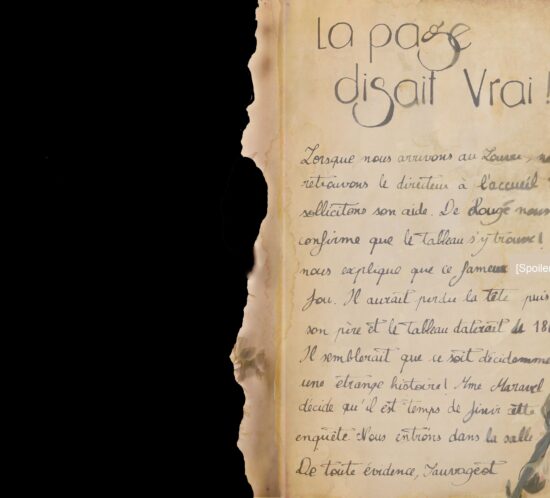 La page
disait Vrai !
Lorsque nous arrivons au Louvre,
retrouvons le directeur à l'accueil
sollicitons son aide. De Rougé nous
confirme que le tableau s'y trouve!
nous explique que ce fameux [Spoiler
fou. Il aurait perdu la tête puis
son père et le tableau daterait de 18
Il semblerait que ce soit décidemme
une étrange histoire! Mme Maravel
décide qu'il est temps de finir cette
enquête. Nous entrons dans la salle
De toute évidence, Sauvageot